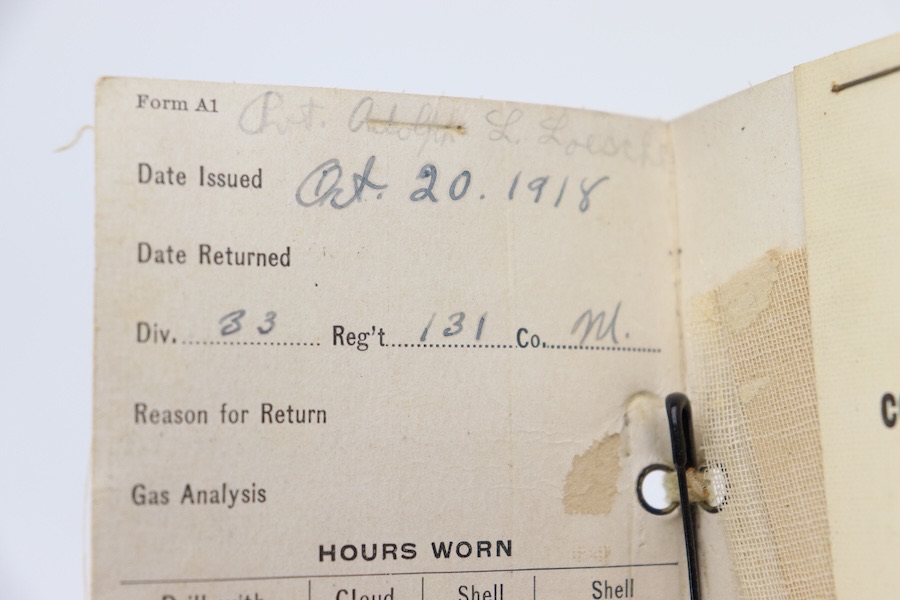 Form A1 Pvt. Adolph L. Loesch
Date Issued Oct. 20. 1918
Date Returned
Div. 33 Reg't 131 Co. M.
Reason for Return
Gas Analysis
HOURS WORN
Drill with Cloud Shell Shell